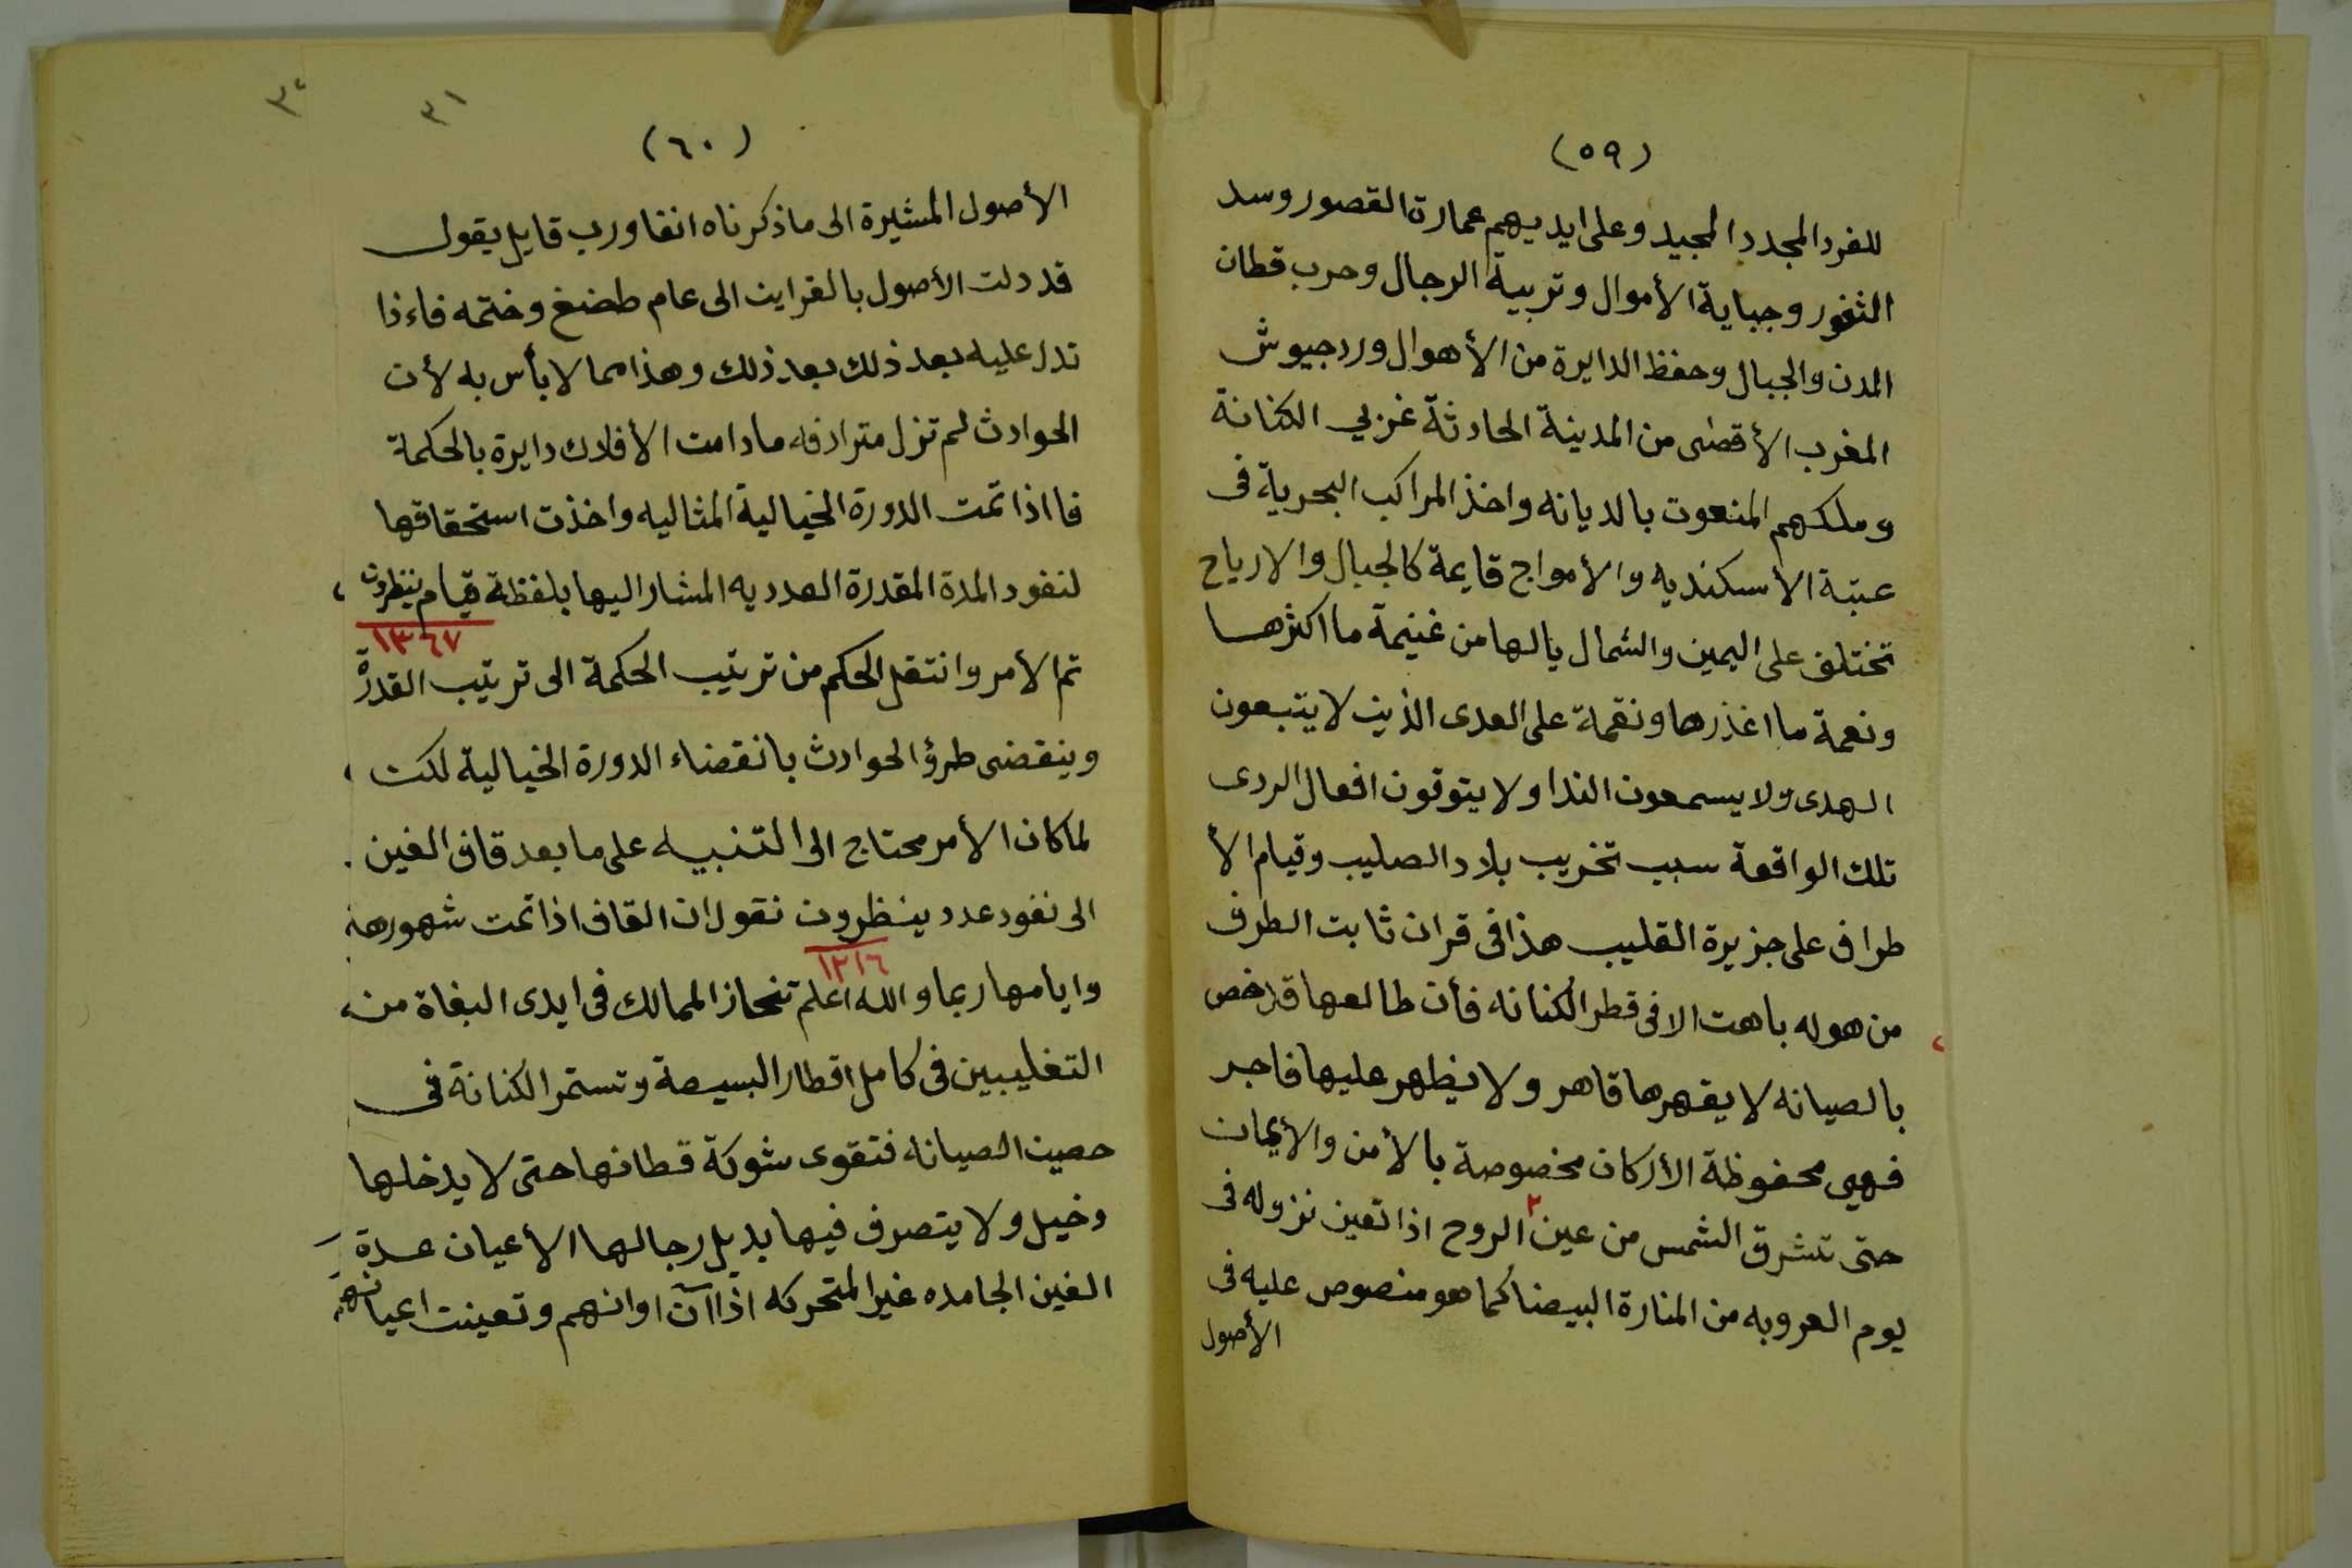 (٥٩)
للفرد المجدد المجيد وعلى ايديهم عمارة القصور وسد
الثغور وجباية الأموال وتربية الرجال وحرب قطان
المدن والجبال وحفظ الدايرة من الأهوال ورد جيوش
المغرب الأقصى من المدينة الحادثة غربي الكنانة
وملكهم المنعوت بالديانه واخذ المراكب البحرية فى
عتبة الأسكنديه والأمواج قايمة كالجبال والارياح
تختلف على اليمين والشمال يالها من غنيمة ما اكثرها
ونعمة ما اغذرها ونقمة على العدى الذين لا يتبعون
الهدى ولا يسمعون الندا ولا يتوقون افعال الردى
تلك الواقعة سبب تخريب بلاد الصليب وقيام الأ
طراف على جزيرة القليب هذا فى قران ثابت الطرف
من هوله باهت الا فى قطر الكنانه فأن طالعها قد خص
بالصيانه لا يقهرها قاهر ولا يظهر عليها فاجر
فهي محفوظة الأركان مخصوصة بالأمن والأيمان
حتى تشرق الشمس من عين ٢ الروح اذا تعين نزوله فى
يوم العروبه من المنارة البيضا كما هو منصوص عليه فى
الأصول
٣٠
٣١
(٦٠)
الأصول المشيرة الى ما ذكرناه انفا ورب قايل يقول
قد دلت الأصول بالقراين الى عام طضغ وختمه فاءذا
تدل عليه بعد ذلك بعد ذلك وهذا مما لا بأس به لأن
الحوادث لم تزل مترادفه مادامت الأفلاك دايرة بالحكمة
فا اذا تمت الدورة الخيالية المثاليه واخذت استحقاقها
لنفود المدة المقدرة العدديه المشار اليها بلفظة قيام ينظرون
١٣٦٧
تم الأمر وانتقل الحكم من ترتيب الحكمة الى ترتيب القدرة
وينقضى طرؤ الحوادث بانقضاء الدورة الخيالية لكن
لما كان الأمر محتاج الى التنبيه على ما بعد قاف الغين
الى نفود عدد ينظرون نقول ان القاف اذا تمت شهورها
١٢١٦
وايامها ربما والله اعلم تنحاز الممالك فى ايدى البغاة من
التغليبين فى كامل اقطار البسيطة وتستمر الكنانة فى
حصين الصيانه فتقوى شوكة قطانها حتى لا يدخلها
دخيل ولا يتصرف فيها بديل رجالها الأعيان عدة
الغين الجامده غير المتحركه اذا آن اوانهم وتعينت اعيانهم